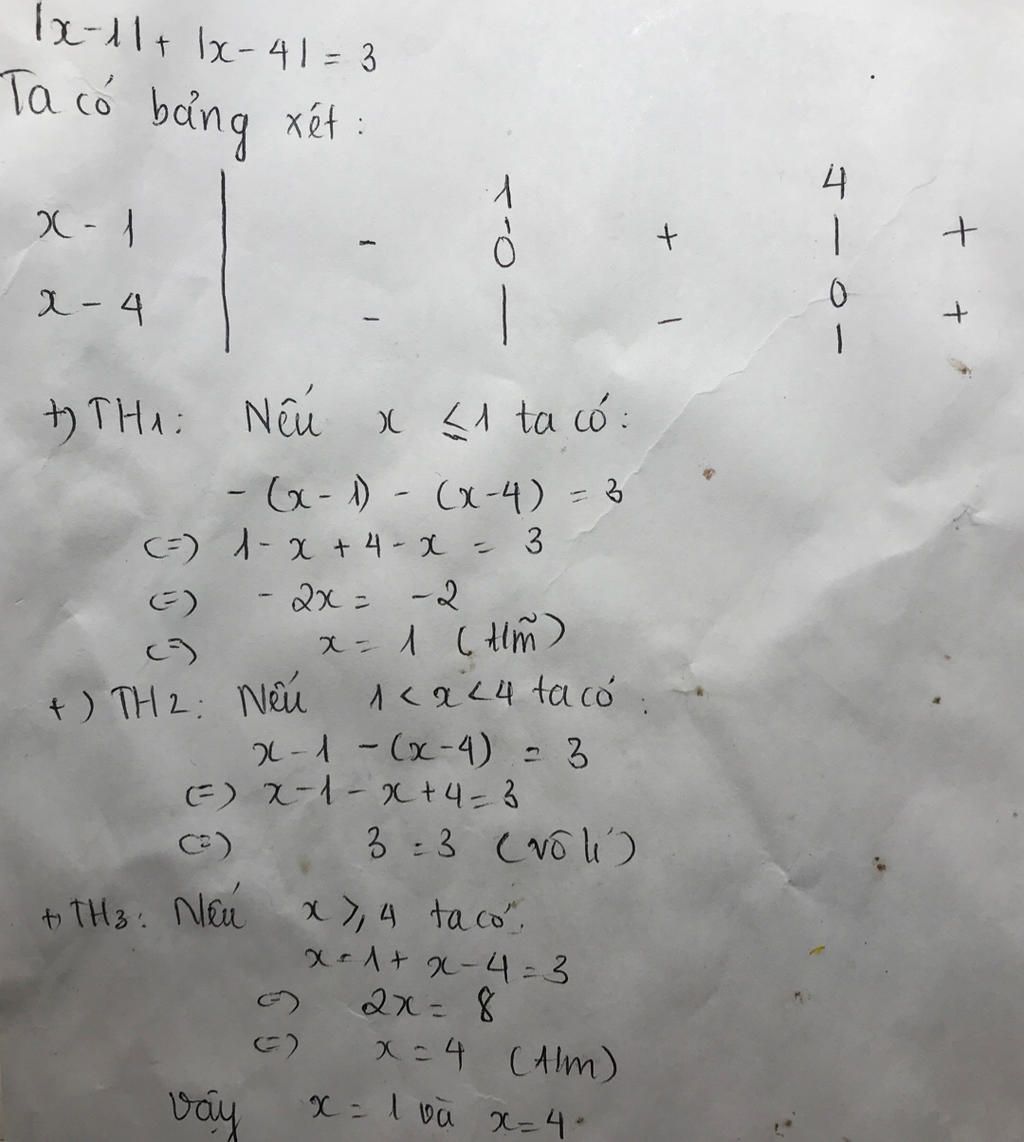 |x-1|+ |x-4| = 3
Ta có bảng xét:
1 4
x-1 | - 0 + | +
x-4 | - | - 0 +
+) TH1: Nếu x ≤ 1 ta có:
-(x-1) - (x-4) = 3
(=) 1-x+4-x = 3
(=) -2x = -2
(=) x = 1 (tlm̃)
+) TH2: Nếu 1<x<4 ta có:
x-1 -(x-4) = 3
(=) x-1-x+4=3
(=) 3=3 (vô lí)
+) TH3: Nếu x ≥ 4 ta có:
x-1+ x-4=3
(=) 2x = 8
(=) x = 4 (tlm)
Vậy x = 1 và x=4.